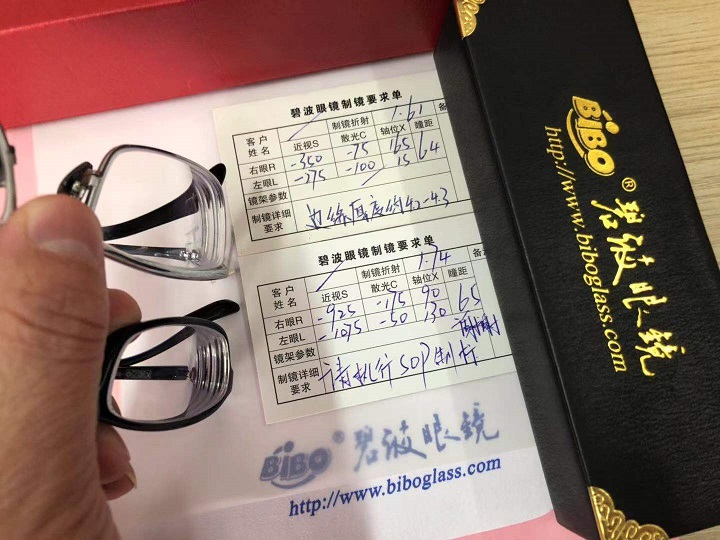 碧波眼镜制镜要求单
客户姓名 制镜折射 1.61 备
近视S 散光C 轴位X 瞳距
右眼R -350 -75 165 64
左眼L -275 -100 15
镜架参数
制镜详细要求
碧波眼镜制镜要求单
客户姓名 制镜折射 1.74 备
近视S 散光C 轴位X 瞳距
右眼R -925 -175 90 65
左眼L -1075 -50 130
镜架参数 谢谢
制镜详细要求 SOP制片
BiBO® 碧波眼镜
http://www.biboglass.com
BiBO® 碧波眼镜
http://www.biboglass.com